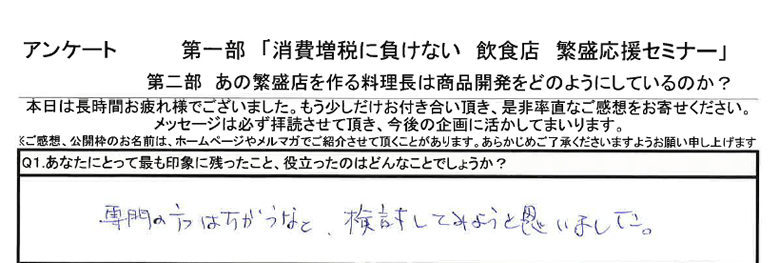 アンケート 第一部 「消費増税に負けない 飲食店 繁盛応援セミナー」
第二部 あの繁盛店を作る料理長は商品開発をどのようにしているのか？
本日は長時間お疲れ様でございました。もう少しだけお付き合い頂き、是非率直なご感想をお寄せください。
メッセージは必ず拝読させて頂き、今後の企画に活かしてまいります。
※ご感想、公開枠のお名前は、ホームページやメルマガでご紹介させて頂くことがあります。あらかじめご了承くださいますようお願い申し上げます
Q1.あなたにとって最も印象に残ったこと、役立ったのはどんなことでしょうか？
専門の方はちがうなと、検討してみようと思いました。